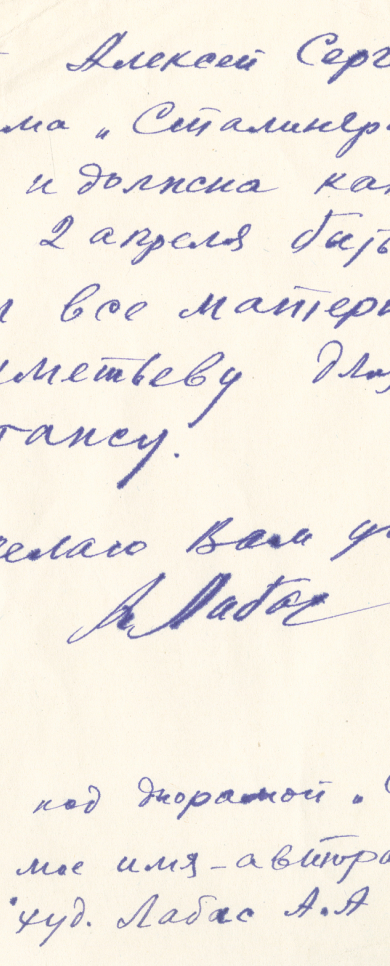 Алексей Серг
ма „Сталингр
и должна как
2 апреля быть
все матери
метьеву для
тансу.
елаю Вам у
А Лабас
под диорамой „С
мое имя - автора
"худ. Лабас А.А